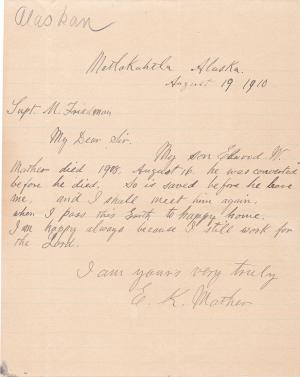 Alaskan
Metlakahtla Alaska.
August 19 1910
Supt. M. Friedman
My Dear Sir.
My son Edword W.
Mather died 1908. August 16. he was converted
before he died. So is saved before he leave
me, and I shall meet him again.
when I pass this Earth to happy home.
I am happy always because I still work for
the Lord.
I am yours very truly
E. K. Mather